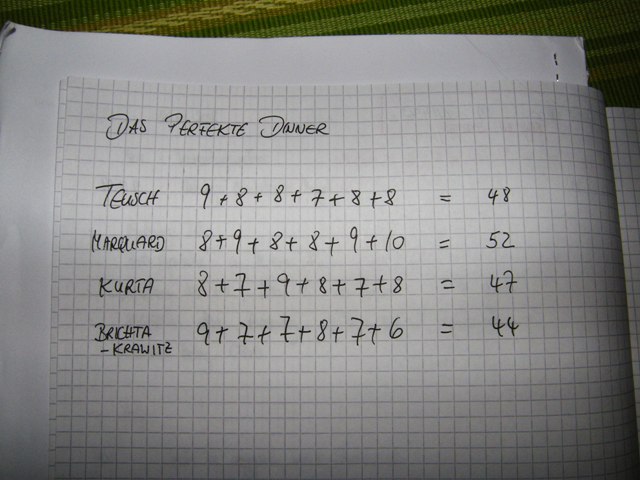 DAS PERFEKTE DINNER
TEUSCH 9+8+8+7+8+8 = 48
MARQUARD 8+9+8+8+9+10 = 52
KURTA 8+7+9+8+7+8 = 47
BRICHTA 9+7+7+8+7+6 = 44
-KRAWITZ